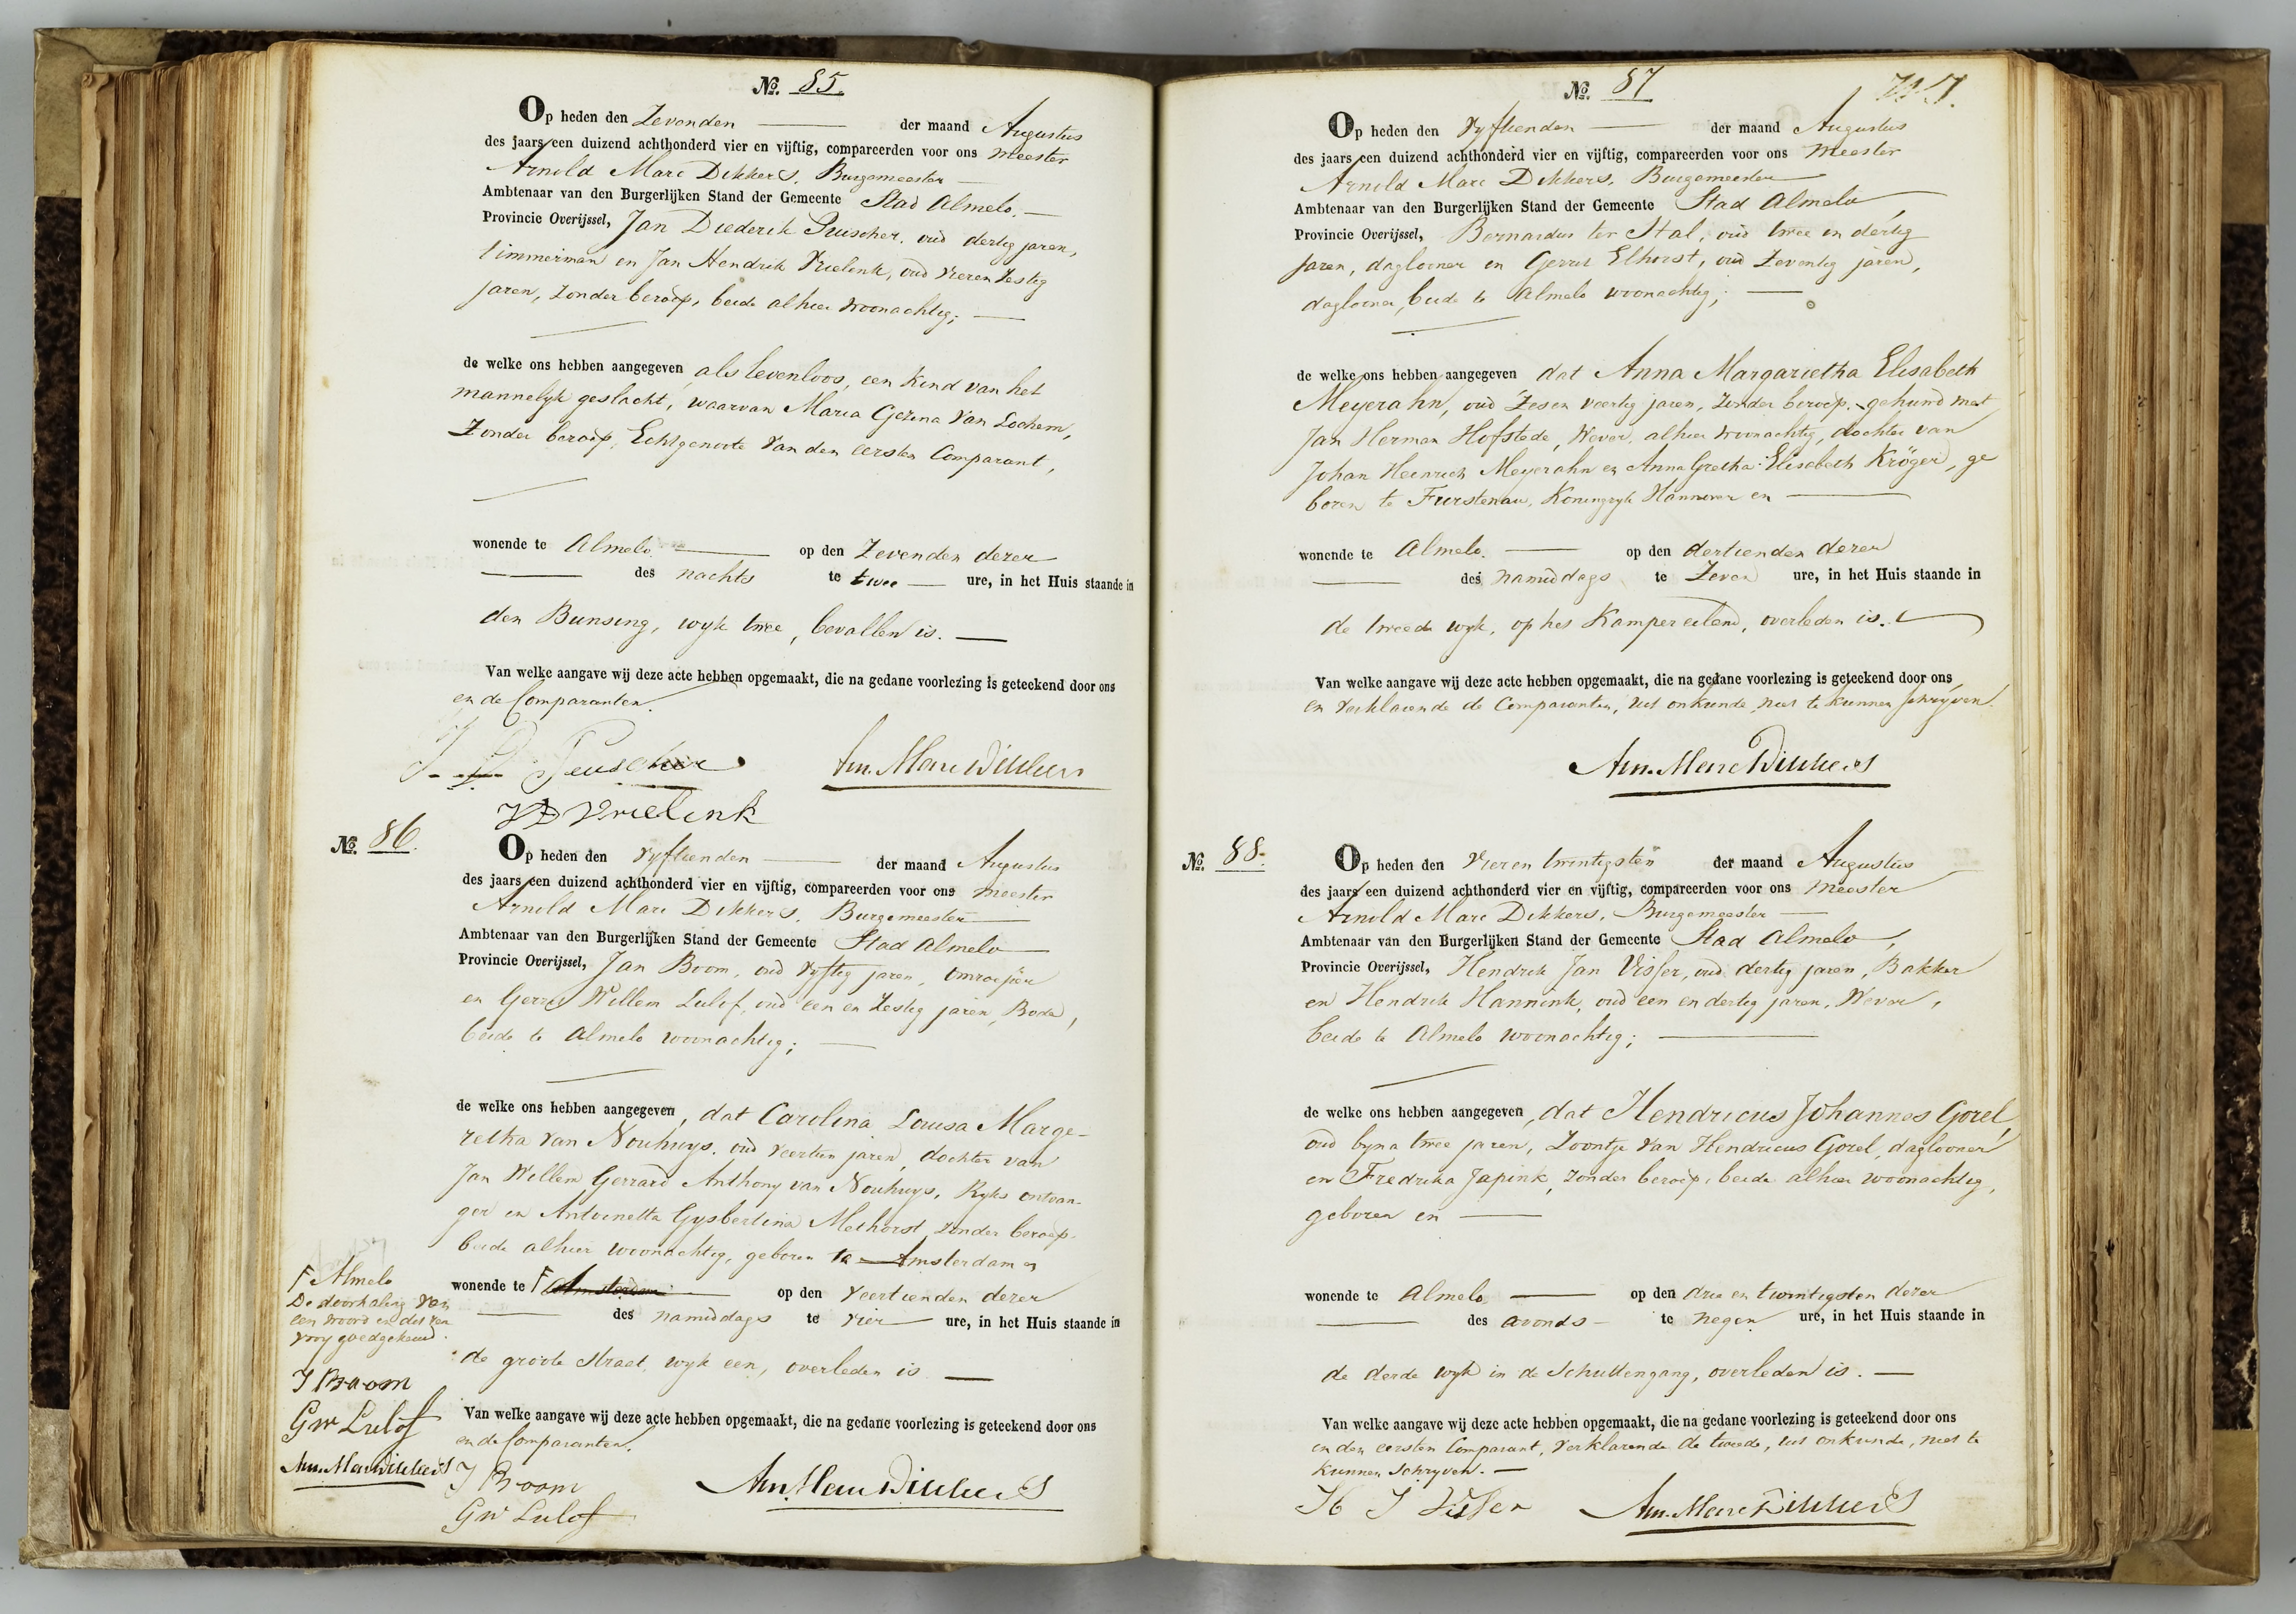 No. 85.
Op heden den Zevenden der maand Augustus
des jaars een duizend achthonderd vier en vijftig, compareerden voor ons Meester
Arnold Marc Dikkers, Burgemeester
Ambtenaar van den Burgerlijken Stand der Gemeente Stad Almelo.
Provincie Overijssel, Jan Diederik Peuscher, oud dertig jaren,
timmerman en Jan Hendrik Vrielink, oud vier en zestig
jaren, zonder beroep, beide alhier woonachtig;
de welke ons hebben aangegeven als levenloos, een kind van het
mannelyk geslacht, waarvan Maria Gezina van Lochem,
zonder beroep, Echtgenoote van den eersten Comparant,
wonende te Almelo. op den Zevenden dezer
des nachts te twee ure, in het Huis staande in
den Bunsing, wyk twee, bevallen is.
Van welke aangave wij deze acte hebben opgemaakt, die na gedane voorlezing is geteekend door ons
en de Comparanten.
J. D. Peuscher Arn. Marc Dikkers
Vrielink
No. 86.
Op heden den vyftienden der maand Augustus
des jaars een duizend achthonderd vier en vijftig, compareerden voor ons Meester
Arnold Marc Dikkers, Burgemeester
Ambtenaar van den Burgerlijken Stand der Gemeente Stad Almelo
Provincie Overijssel, Jan Boom, oud vyftig jaren, omroeper
en Gerrit Willem Lulof, oud een en zestig jaren, Bode,
beide te Almelo woonachtig;
de welke ons hebben aangegeven, dat Carolina Louisa Marge-
retha van Nouhuys, oud veertien jaren, dochter van
Jan Willem Gerrard Anthony van Nouhuys, Ryks ontvan-
ger en Antoinetta Gysbertina Methorst, zonder beroep,
beide alhier woonachtig, geboren te Amsterdam en
wonende te F Amsterdam op den veertienden dezer
des namiddags te vier ure, in het Huis staande in
de groote straat, wyk een, overleden is
Van welke aangave wij deze acte hebben opgemaakt, die na gedane voorlezing is geteekend door ons
en de Comparanten.
J Boom Arn. Marc Dikkers
GW Lulof
F Almelo
De doorhaling van
een woord en dit ren
vooy goedgekeurd.
J Boom
GW Lulof
Arn. Marc Dikkers
No. 87
Op heden den vyftienden der maand Augustus
des jaars een duizend achthonderd vier en vijftig, compareerden voor ons Meester
Arnold Marc Dikkers, Burgemeester
Ambtenaar van den Burgerlijken Stand der Gemeente Stad Almelo,
Provincie Overijssel, Bernardus ter Stal, oud twee en dertig
jaren, daglooner en Gerrit Elhorst, oud zeventig jaren,
daglooner, beide te Almelo woonachtig;
de welke ons hebben aangegeven dat Anna Margarietha Elisabeth
Meyerahn, oud zes en veertig jaren, zonder beroep, gehuwd met
Jan Herman Hofstede, Wever, alhier woonachtig, dochter van
Johan Heinrich Meyerahn en Anna Gretha Elisabeth Kröger, ge
boren te Furstenau, Koningryk Hannover en
wonende te Almelo. op den dertienden dezer
des namiddags te Zeven ure, in het Huis staande in
de tweede wyk, op het Kampereiland, overleden is.
Van welke aangave wij deze acte hebben opgemaakt, die na gedane voorlezing is geteekend door ons
en verklarende de Comparanten, uit onkunde, niet te kunnen schryven.
Arn. Marc Dikkers
No. 88.
Op heden den vier en twintigsten der maand Augustus
des jaars een duizend achthonderd vier en vijftig, compareerden voor ons Meester
Arnold Marc Dikkers, Burgemeester
Ambtenaar van den Burgerlijken Stand der Gemeente Stad Almelo,
Provincie Overijssel, Hendrik Jan Visser, oud dertig jaren, Bakker
en Hendrik Hannink, oud een en dertig jaren, Wever,
beide te Almelo woonachtig;
de welke ons hebben aangegeven, dat Hendricus Johannes Gorel,
oud byna twee jaren, Zoontje van Hendricus Gorel, daglooner
en Fredrika Japink, zonder beroep, beide alhier woonachtig,
geboren en
wonende te Almelo op den drie en twintigsten dezer
des avonds te negen ure, in het Huis staande in
de derde wyk in de Schuttengang, overleden is.
Van welke aangave wij deze acte hebben opgemaakt, die na gedane voorlezing is geteekend door ons
en den eersten Comparant, verklarende de tweede, uit onkunde, niet te
kunnen schryven.
H J Visser Arn. Marc Dikkers